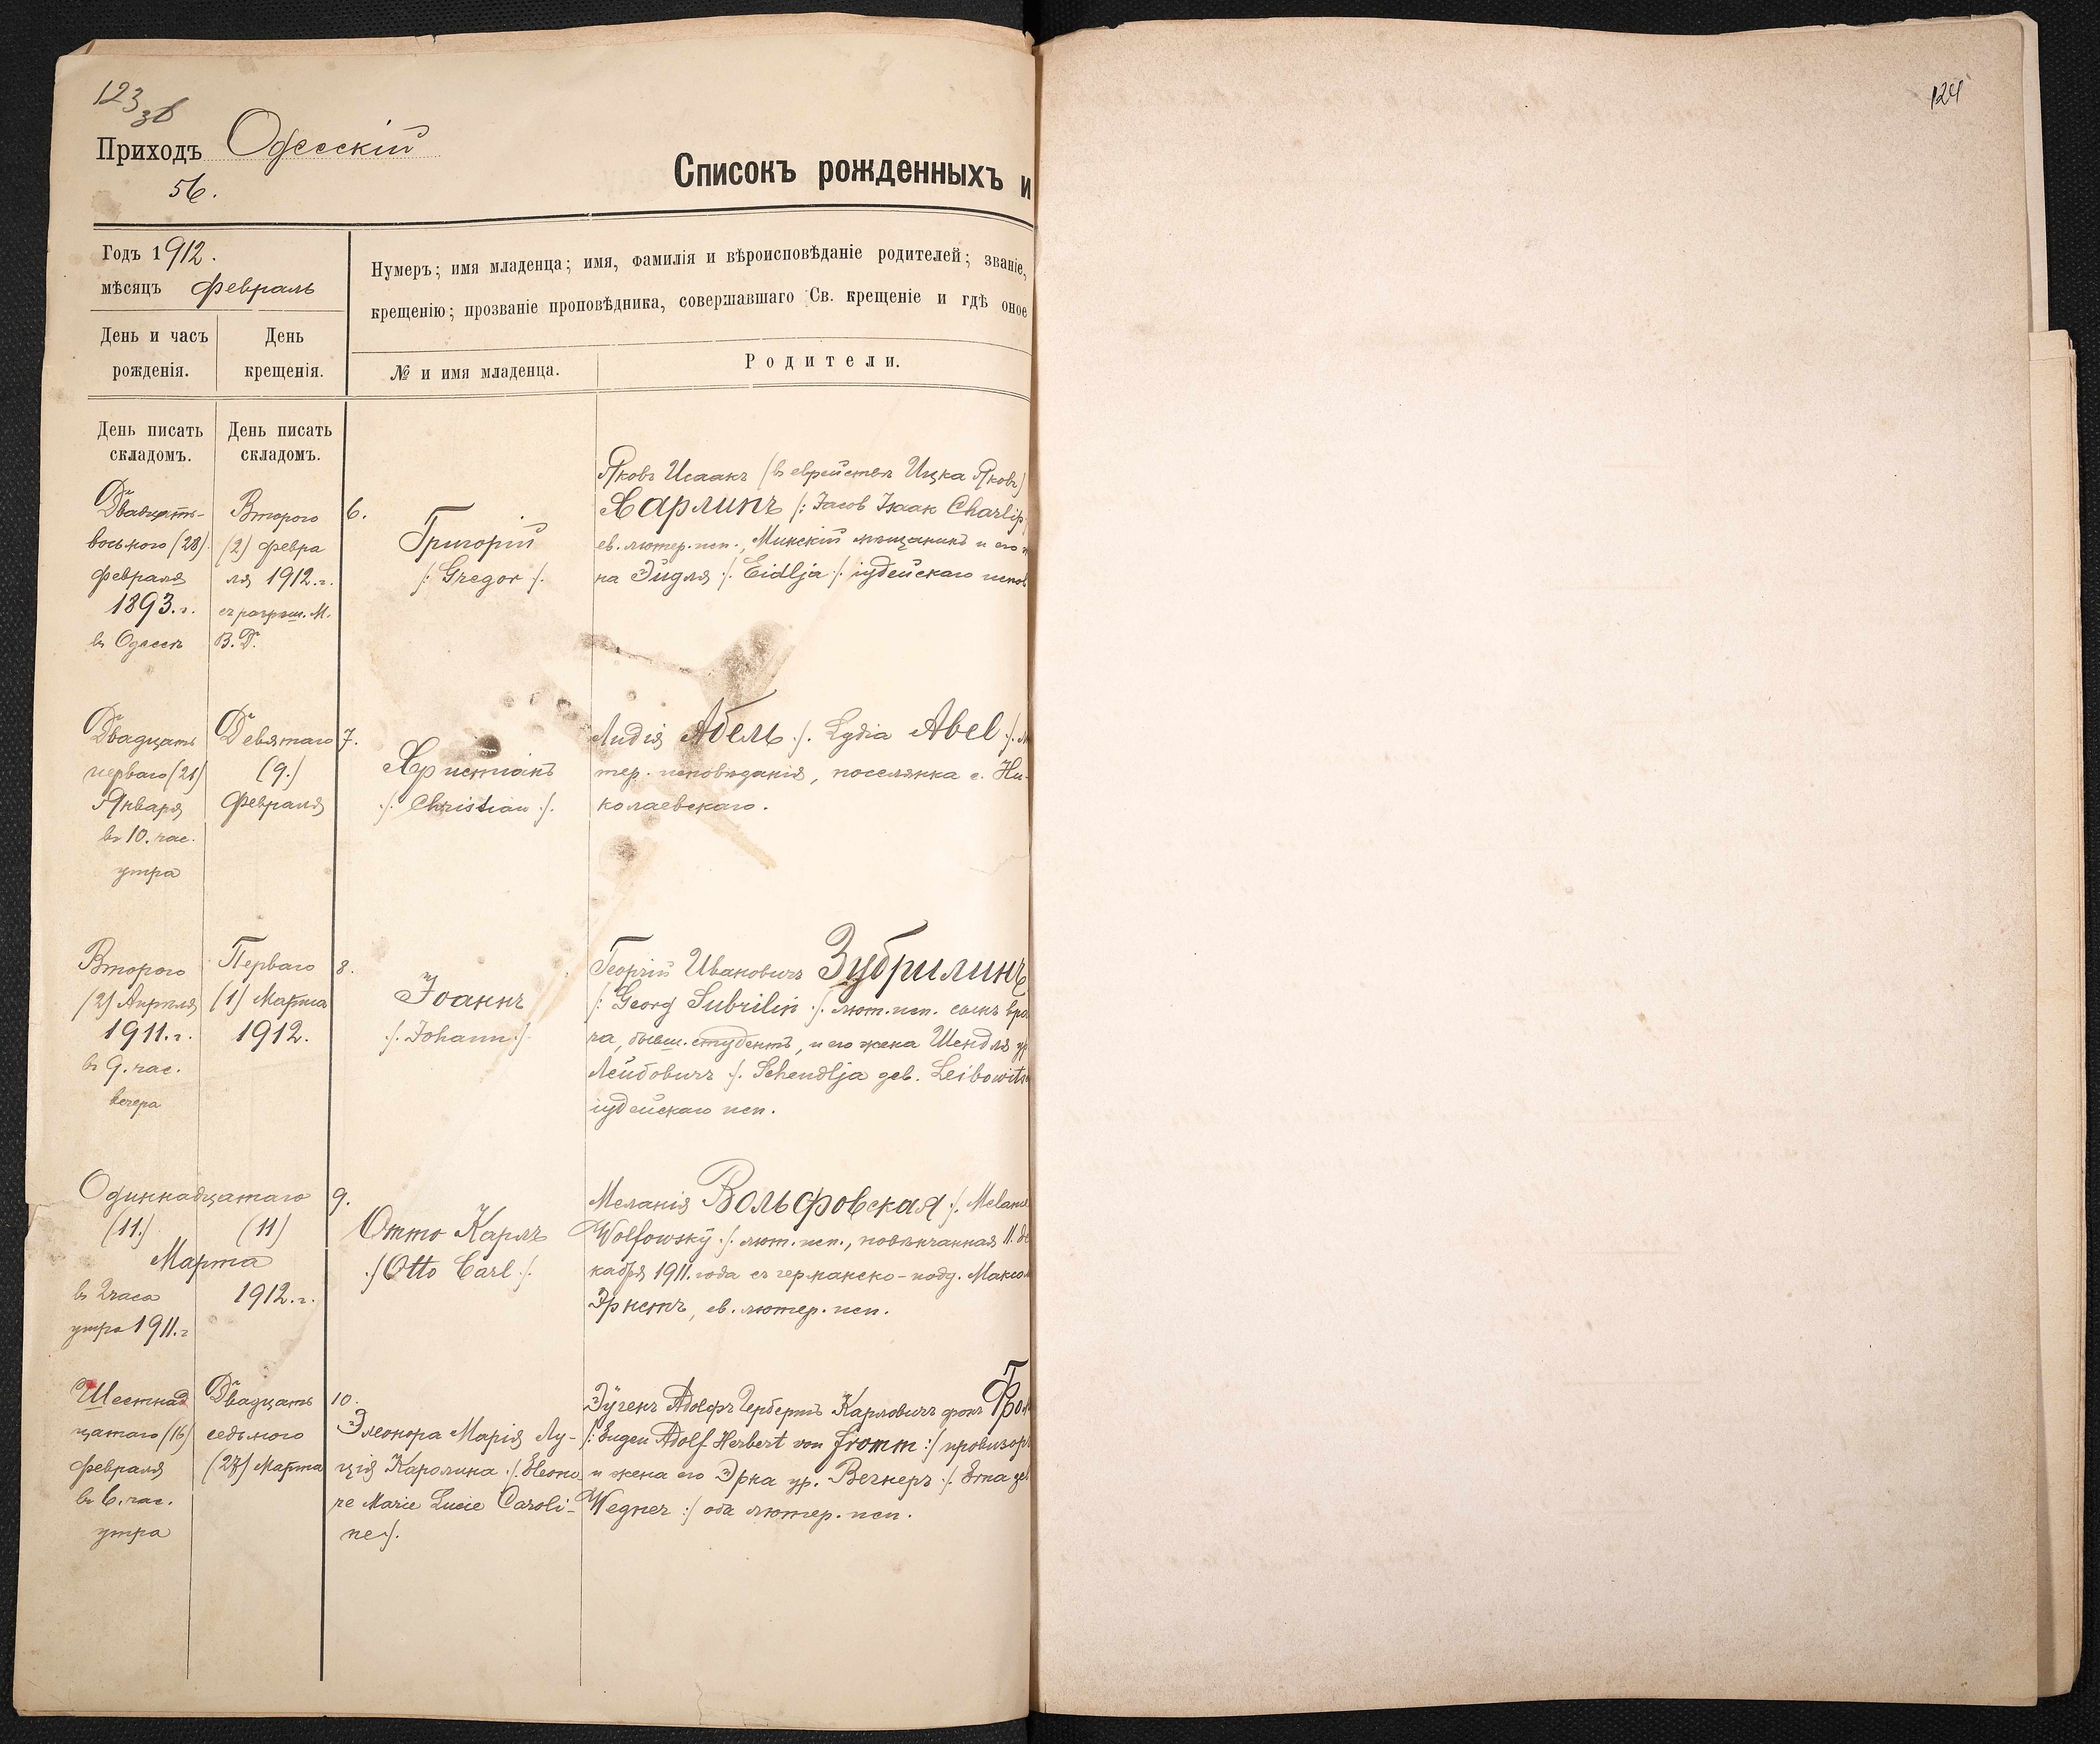 123 зв
Приходъ Одесскій
56.
Списокъ рожденныхъ и
Годъ 1912.
мѣсяцъ Февраль
Нумеръ; имя младенца; имя, фамилія и вѣроисповѣданіе родителей; званіе,
крещенію; прозваніе проповѣдника, совершавшаго Св. крещеніе и гдѣ оное
День и часъ
рожденія.
День
крещенія.
№ и имя младенца.
Родители.
День писать
складомъ.
День писать
складомъ.
Двадцать-
восьмого (28)
февраля
1893.г.
въ Одессѣ
Второго
(2) февра
ля 1912.г.
съ разрѣш. М.
В. Д.
6.
Григорій
/: Gregor :/.
Яковъ Исаакъ (въ еврействѣ Ицка Яковъ)
Харлипъ /: Jacob Isaak Charlip
ев. лютер. исп., Минскій мѣщанинъ и его ж
на Эйдля /: Eidlja :/ іудейскаго испов
Двадцать
перваго (21)
Января
въ 10. час.
утра
Девятаго
(9.)
Февраля
7.
Христіанъ
/: Christian :/.
Лидія Абель /: Lydia Abel :/.
тер. исповѣданія, поселянка с. Ни-
колаевскаго.
Второго
(2) Апрѣля
1911.г.
въ 9. час.
вечера
Перваго
(1) Марта
1912.
8.
Іоаннъ
/: Johann :/
Георгій Ивановичъ Зубрилинъ
/: Georg Subrilin :/. лют. исп. сынъ вра
ча, бывш. студентъ, и его жена Шендля ур
Лейбовичъ /: Schendlja geb. Leibowits
іудейскаго исп.
Одиннадцатаго
(11.) (11)
Марта
въ 2 часа
утра 1911.г
1912.г.
9.
Отто Карлъ
/: Otto Carl :/.
Меланія Вольфовская /: Melanie
Wolfowsky :/. лют. исп., повѣнчанная 11. де
кабря 1911. года съ германско-подд. Максом
Эрнстъ, ев. лютер. исп.
Шестнад
цатаго (16)
февраля
въ 6. час.
утра
Двадцать
седьмого
(27) Марта
10.
Элеонора Марія Лу-
ція Каролина /: Eleono
re Marie Lucie Caroli-
ne :/.
Эугенъ Адольфъ Гербертъ Карловичъ фонъ
/: Eugen Adolf Herbert von Fromm :/ провизоръ
и жена его Эрна ур. Вегнеръ /: Erna geb
Wegner :/ оба лютер. исп.
124